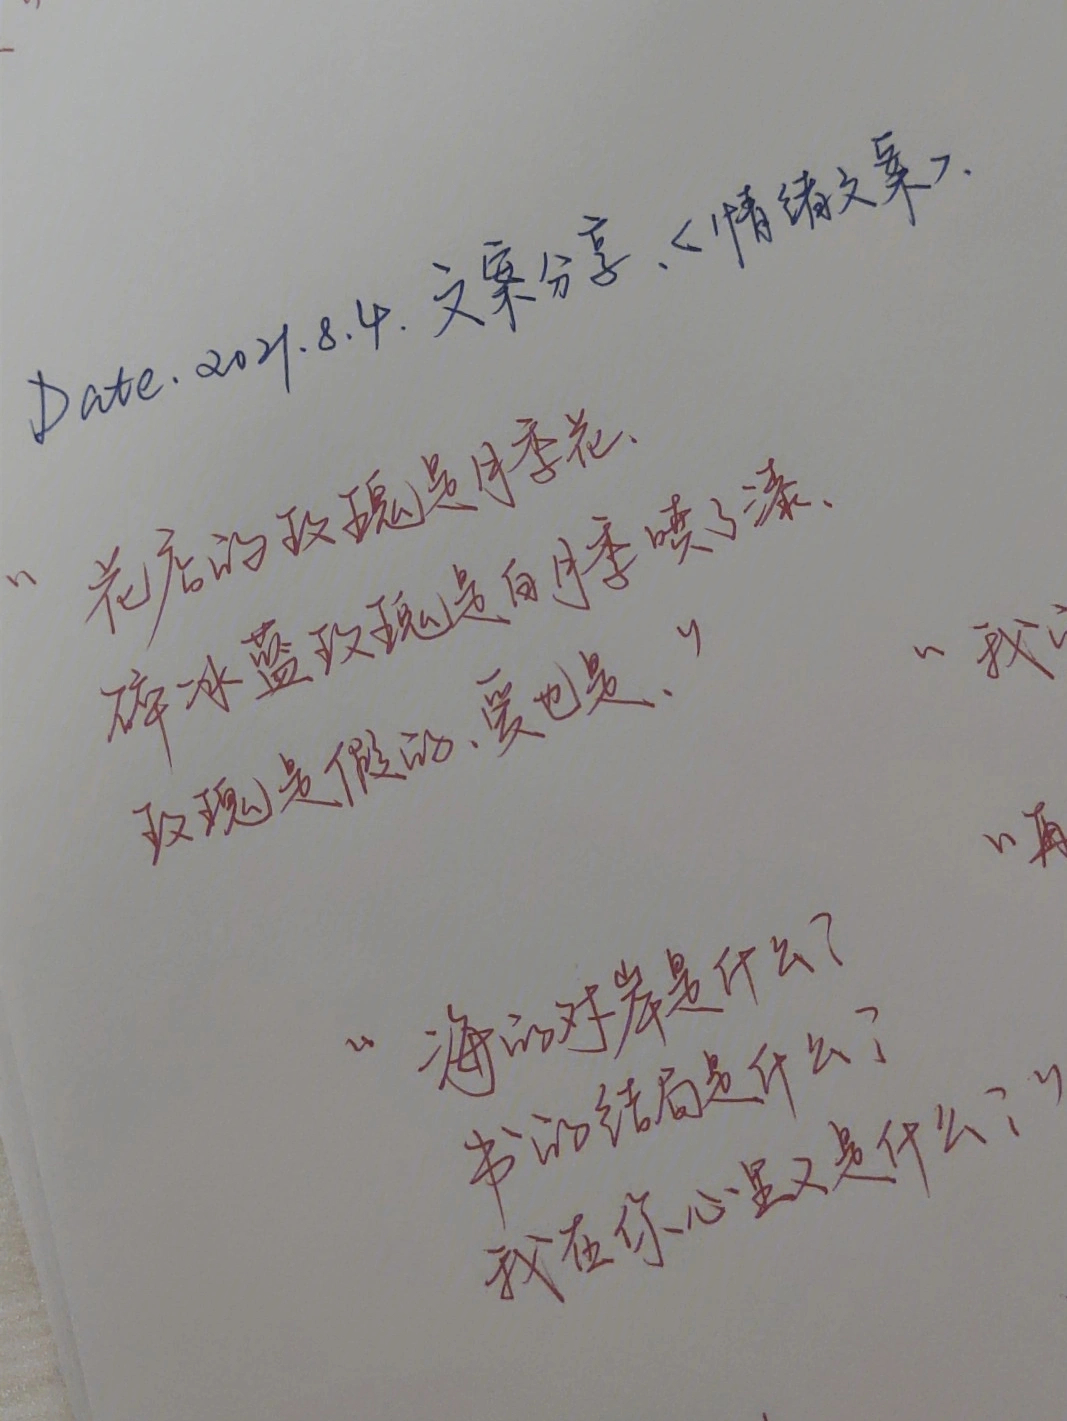 Date. 2021.8.4. 文案分享、<情绪文案>.
“花店的玫瑰是月季花、
碎冰蓝玫瑰是白月季喷了漆、
玫瑰是假的、爱也是、”
“我
“再
“海的对岸是什么？
书的结局是什么？
我在你心里又是什么？”